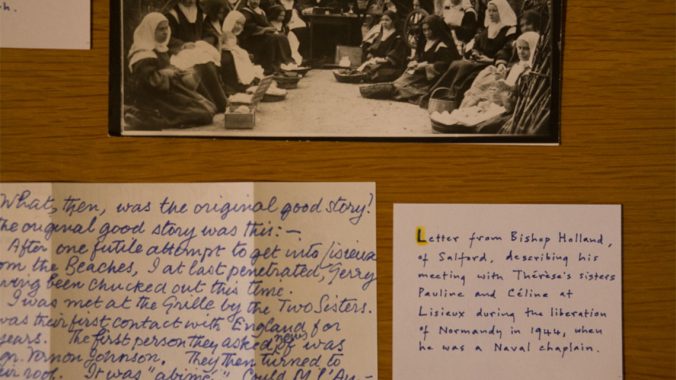 h.
What, then, was the original good story?
the original good story was this: —
After one futile attempt to get into Lisieux
om the Beaches, I at last penetrated, Jerry
aving been chucked out this time.
I was met at the Grille by the Two Sisters.
was their first contact with England for
years. The first person they asked news of was
gr. Vernon Johnson. They then turned to
eir roof. It was "abîmé."
Letter from Bishop Holland,
of Salford, describing his
meeting with Thérèse's sisters
Pauline and Céline at
Lisieux during the liberation
of Normandy in 1944, when
he was a Naval chaplain.